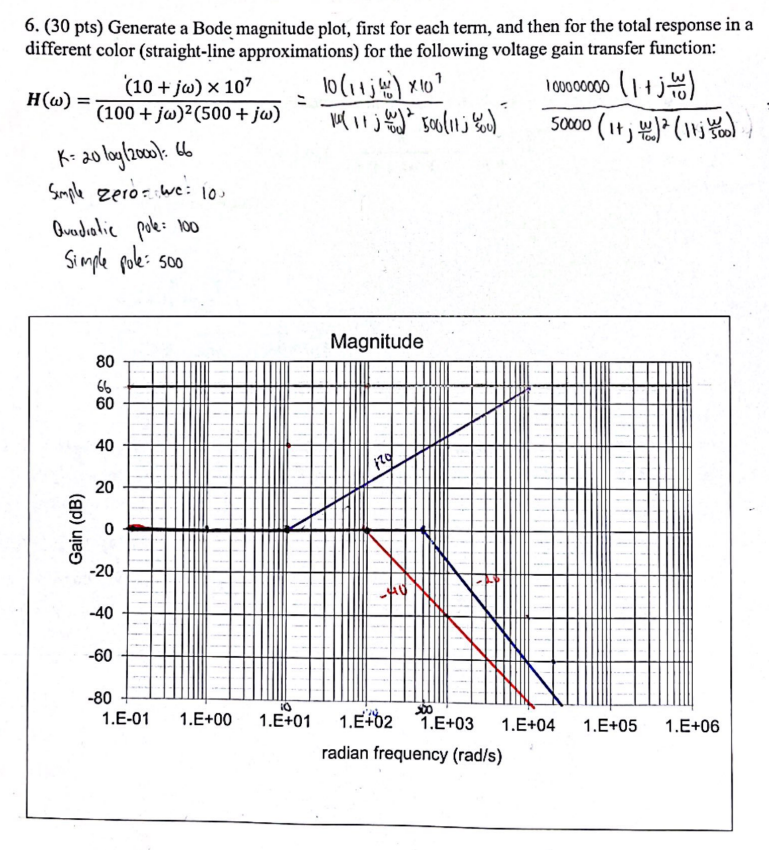 6. (30 pts) Generate a Bode magnitude plot, first for each term, and then for the total response in a
different color (straight-line approximations) for the following voltage gain transfer function:
H(ω) = (10 + jω) × 10⁷ / (100 + jω)²(500 + jω) = 10(1+j ω/10) ×10⁷ / (1+j ω/100)² 500(1+j ω/500) = 100000000 (1+j ω/10) / 50000 (1+j ω/100)² (1+j ω/500)
K= 20 log(2000): 66
Simple zero = wc: 10
Quadratic pole: 100
Simple pole: 500
Magnitude
80
66
60
40
20
0
-20
-40
-60
-80
Gain (dB)
+20
-40
-20
10
500
1.E-01 1.E+00 1.E+01 1.E+02 1.E+03 1.E+04 1.E+05 1.E+06
radian frequency (rad/s)